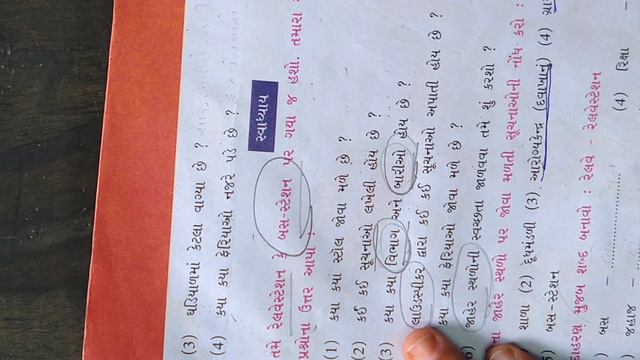 (3) ઘડિયાળમાં કેટલા વાગ્યા છે ?
(4) કયા કયા ફેરિયાઓ નજરે પડે છે ?
સ્વાધ્યાય
તમે રેલવેસ્ટેશન કે બસ-સ્ટેશન પર ગયા જ હશો. તમારા
પ્રશ્નોના ઉત્તર આપો :
(1) કયા કયા સ્ટોલ જોવા મળે છે ?
(2) કઈ કઈ સૂચનાઓ લખેલી હોય છે ?
(3) કયા કયા વિભાગ અને બારીઓ હોય છે ?
લાઉડસ્પીકર દ્વારા કઈ કઈ સૂચનાઓ અપાતી હોય છે ?
કયા કયા ફેરિયાઓ જોવા મળે છે ?
જાહેર સ્થળોની સ્વચ્છતા જાળવવા તમે શું કરશો ?
જાહેર સ્થળો પર જોવા મળતી સૂચનાઓની નોંધ કરો :
શાળા (2) દૂધમંડળી (3) આરોગ્યકેન્દ્ર (દવાખાનું) (4)
બસ-સ્ટેશન
મુજબ શબ્દ બનાવો : રેલવે - રેલવેસ્ટેશન
બસ -
જહાજ (4) રિક્ષા -